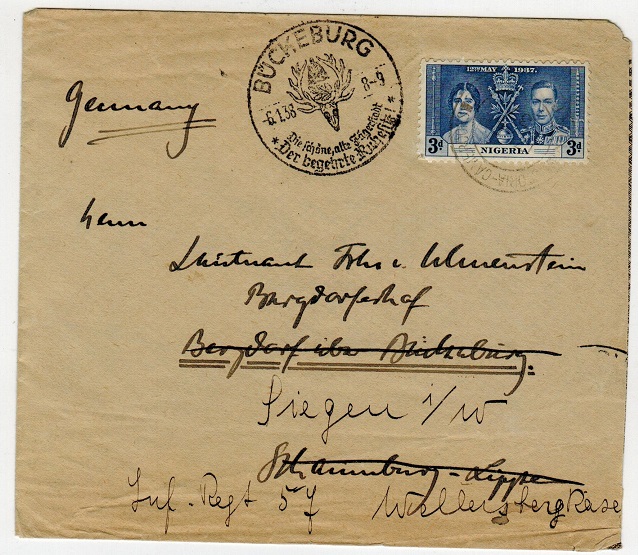 BÜCKEBURG
-6.1.38 8-9
Die schöne, alte Jägerstadt
* Der begehrte Ruhesitz! *
12TH MAY 1937.
3d NIGERIA 3d
Germany
Herrn
Lieutnant Frhr v. Ulmenstein
Burgdorferhof
Bergdorf über Bückeburg.
Siegen i/W
Schaumburg-Lippe
Inf. Regt 57 Wellersbergkaserne